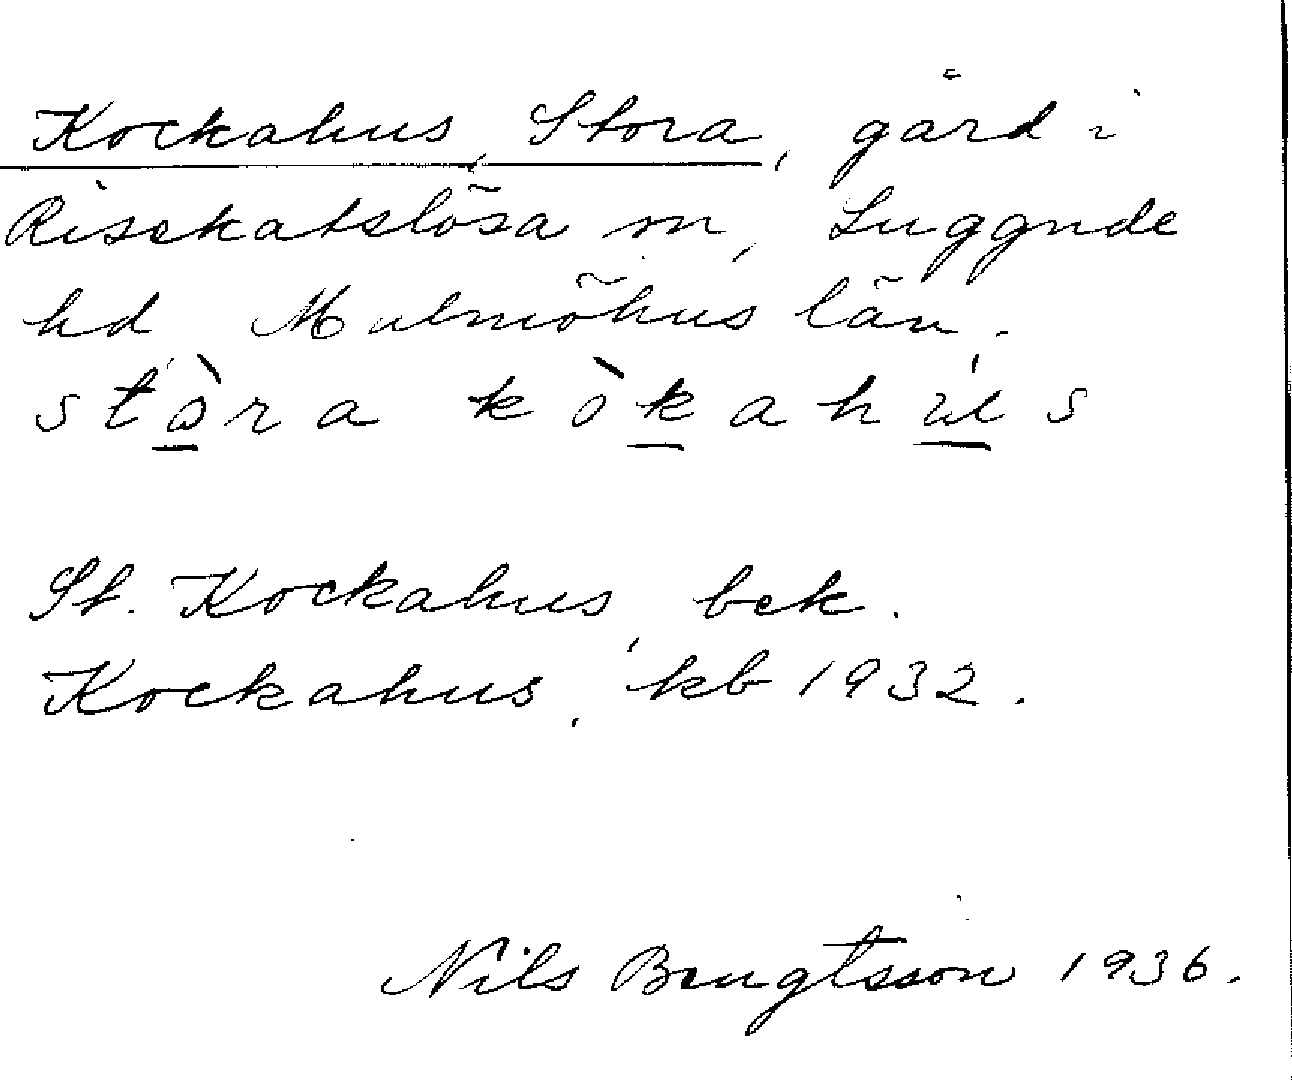 Kockahus, Stora, gård i
Risekatslösa sn, Luggude
hd, Malmöhus län.
stòra kòkahús
St. Kockahus, bek.
Kockahus, kb 1932.
Nils Bengtsson 1936.